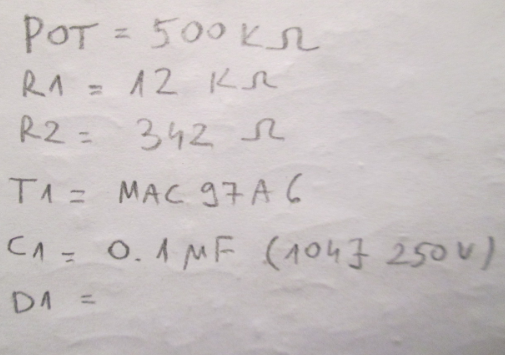 POT = 500 K Ω
R1 = 12 KΩ
R2 = 342 Ω
T1 = MAC 97A6
C1 = 0.1 μF (104J 250V)
D1 =